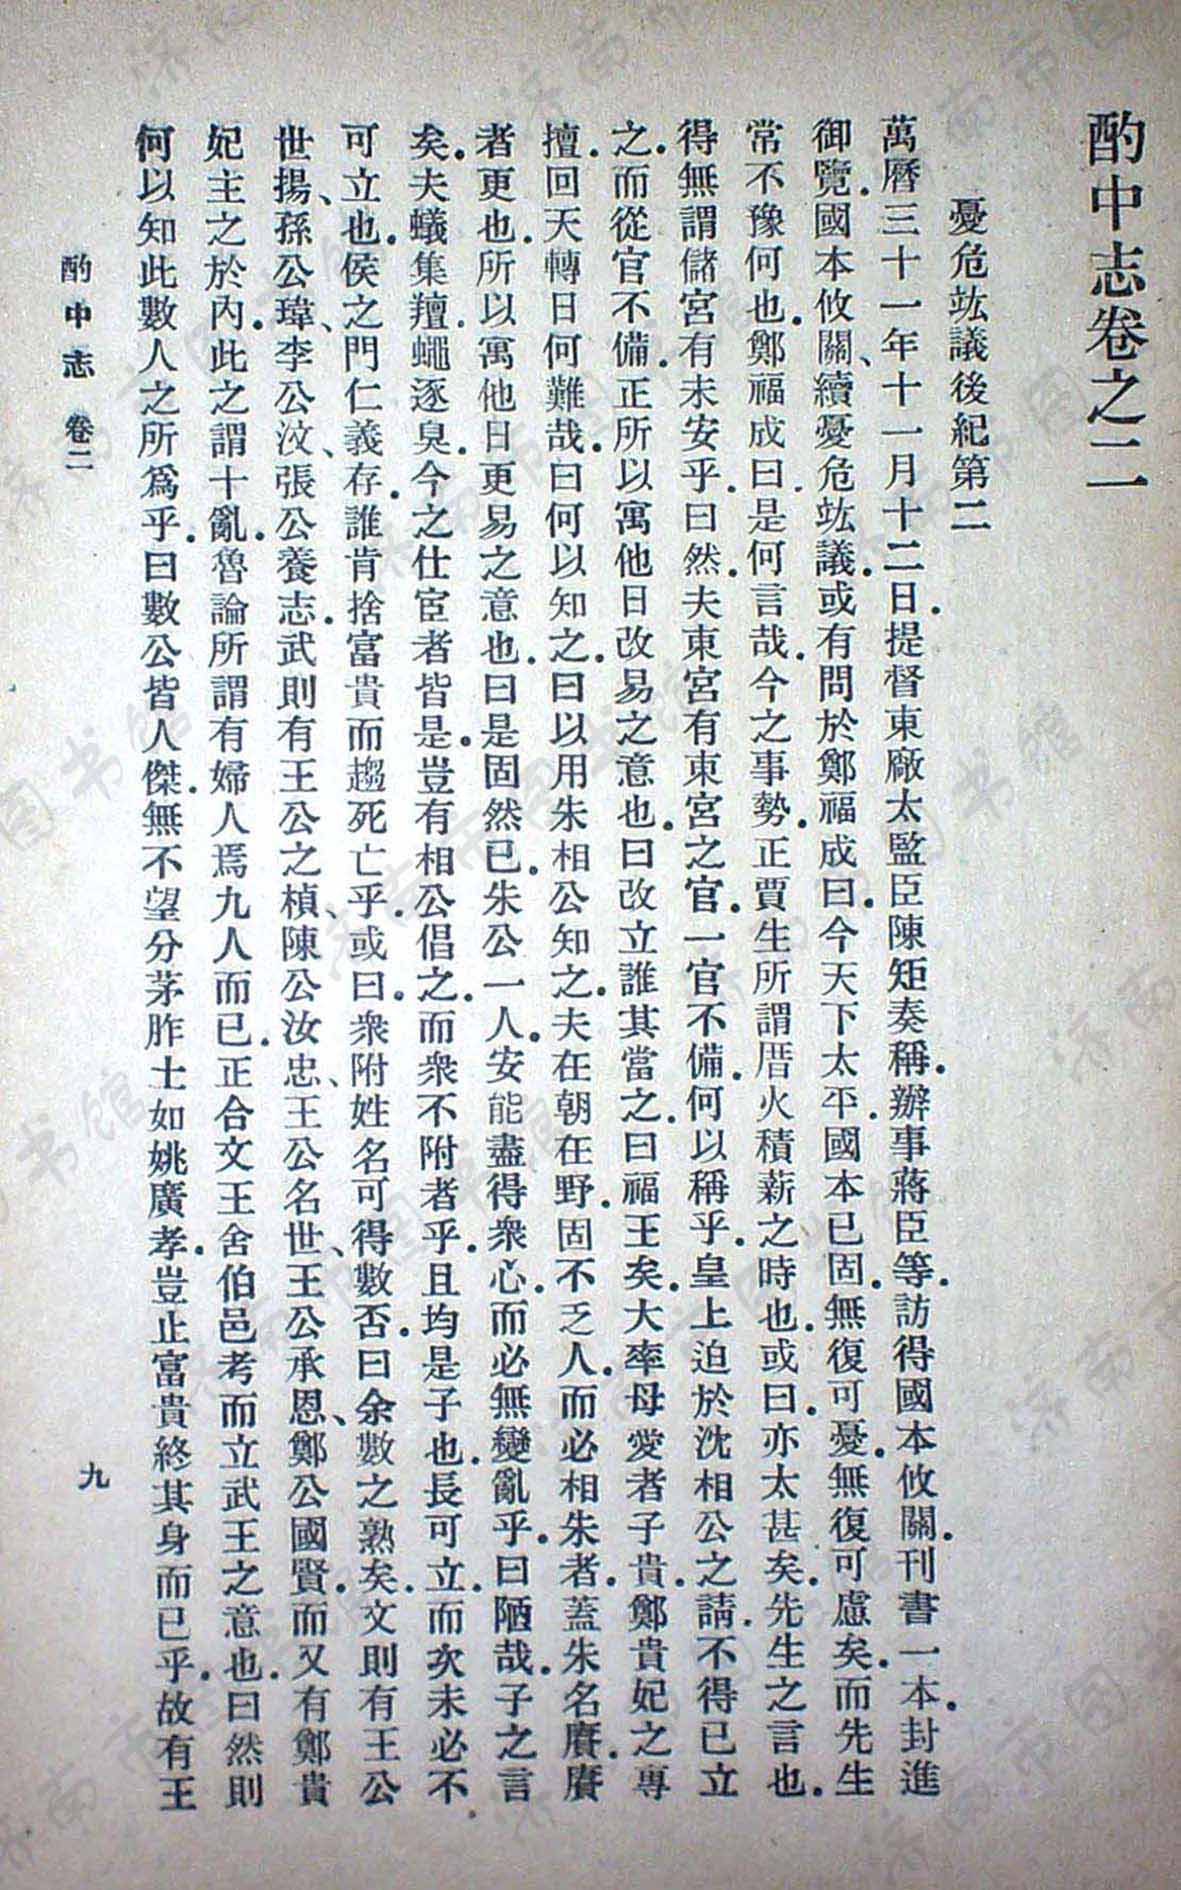 酌中志卷之二
憂危竑議後紀第二
萬曆三十一年十一月十二日．提督東廠太監臣陳矩奏稱．辦事蔣臣等．訪得國本攸關．刊書一本．封進
御覽．國本攸關、續憂危竑議．或有問於鄭福成曰．今天下太平．國本已固．無復可憂．無復可慮矣．而先生
常不豫何也．鄭福成曰．是何言哉．今之事勢．正賈生所謂厝火積薪之時也．或曰．亦太甚矣．先生之言也．
得無謂儲宮有未安乎．曰然．夫東宮有東宮之官．一官不備．何以稱乎．皇上迫於沈相公之請．不得已立
之．而從官不備．正所以寓他日改易之意也．曰改立誰其當之．曰福王矣．大率母愛者子貴．鄭貴妃之專
擅．回天轉日何難哉．曰何以知之．曰以用朱相公知之．夫在朝在野．固不乏人．而必相朱者．蓋朱名賡．賡
者更也．所以寓他日更易之意也．曰是固然已．朱公一人．安能盡得衆心．而必無變亂乎．曰陋哉．子之言
矣．夫蟻集羶．蠅逐臭．今之仕宦者皆是．豈有相公倡之．而衆不附者乎．且均是子也．長可立．而次未必不
可立也．侯之門仁義存．誰肯捨富貴而趨死亡乎．或曰．衆附姓名可得數否．曰余數之熟矣．文則有王公
世揚、孫公瑋、李公汶、張公養志．武則有王公之楨、陳公汝忠、王公名世、王公承恩、鄭公國賢．而又有鄭貴
妃主之於內．此之謂十亂．魯論所謂有婦人焉九人而已．正合文王舍伯邑考而立武王之意也．曰然則
何以知此數人之所爲乎．曰數公皆人傑．無不望分茅胙土如姚廣孝．豈止富貴終其身而已乎．故有王
酌中志 卷二
九
济南市图书馆